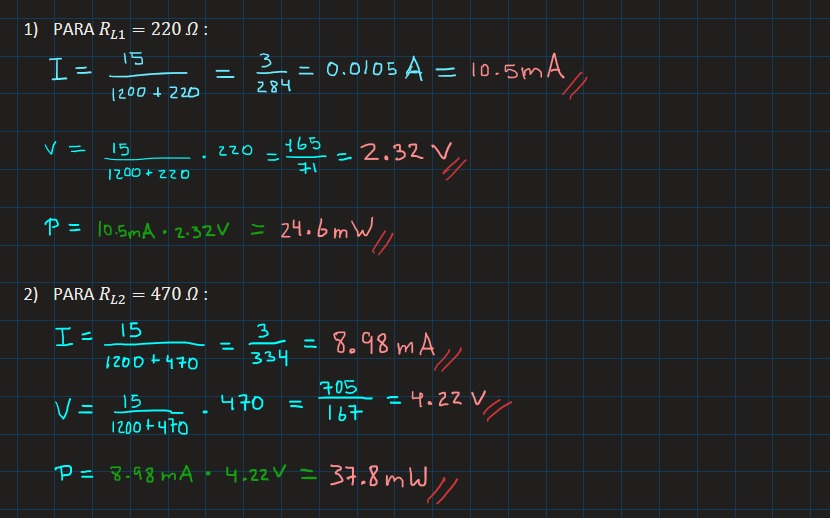 1) PARA R_L1 = 220 Ω :
I = 15 / (1200 + 220) = 3/284 = 0.0105 A = 10.5mA
V = 15 / (1200 + 220) · 220 = 165/71 = 2.32 V
P = 10.5mA · 2.32V = 24.6mW
2) PARA R_L2 = 470 Ω :
I = 15 / (1200 + 470) = 3/334 = 8.98 mA
V = 15 / (1200 + 470) · 470 = 705/167 = 4.22 V
P = 8.98 mA · 4.22V = 37.8mW